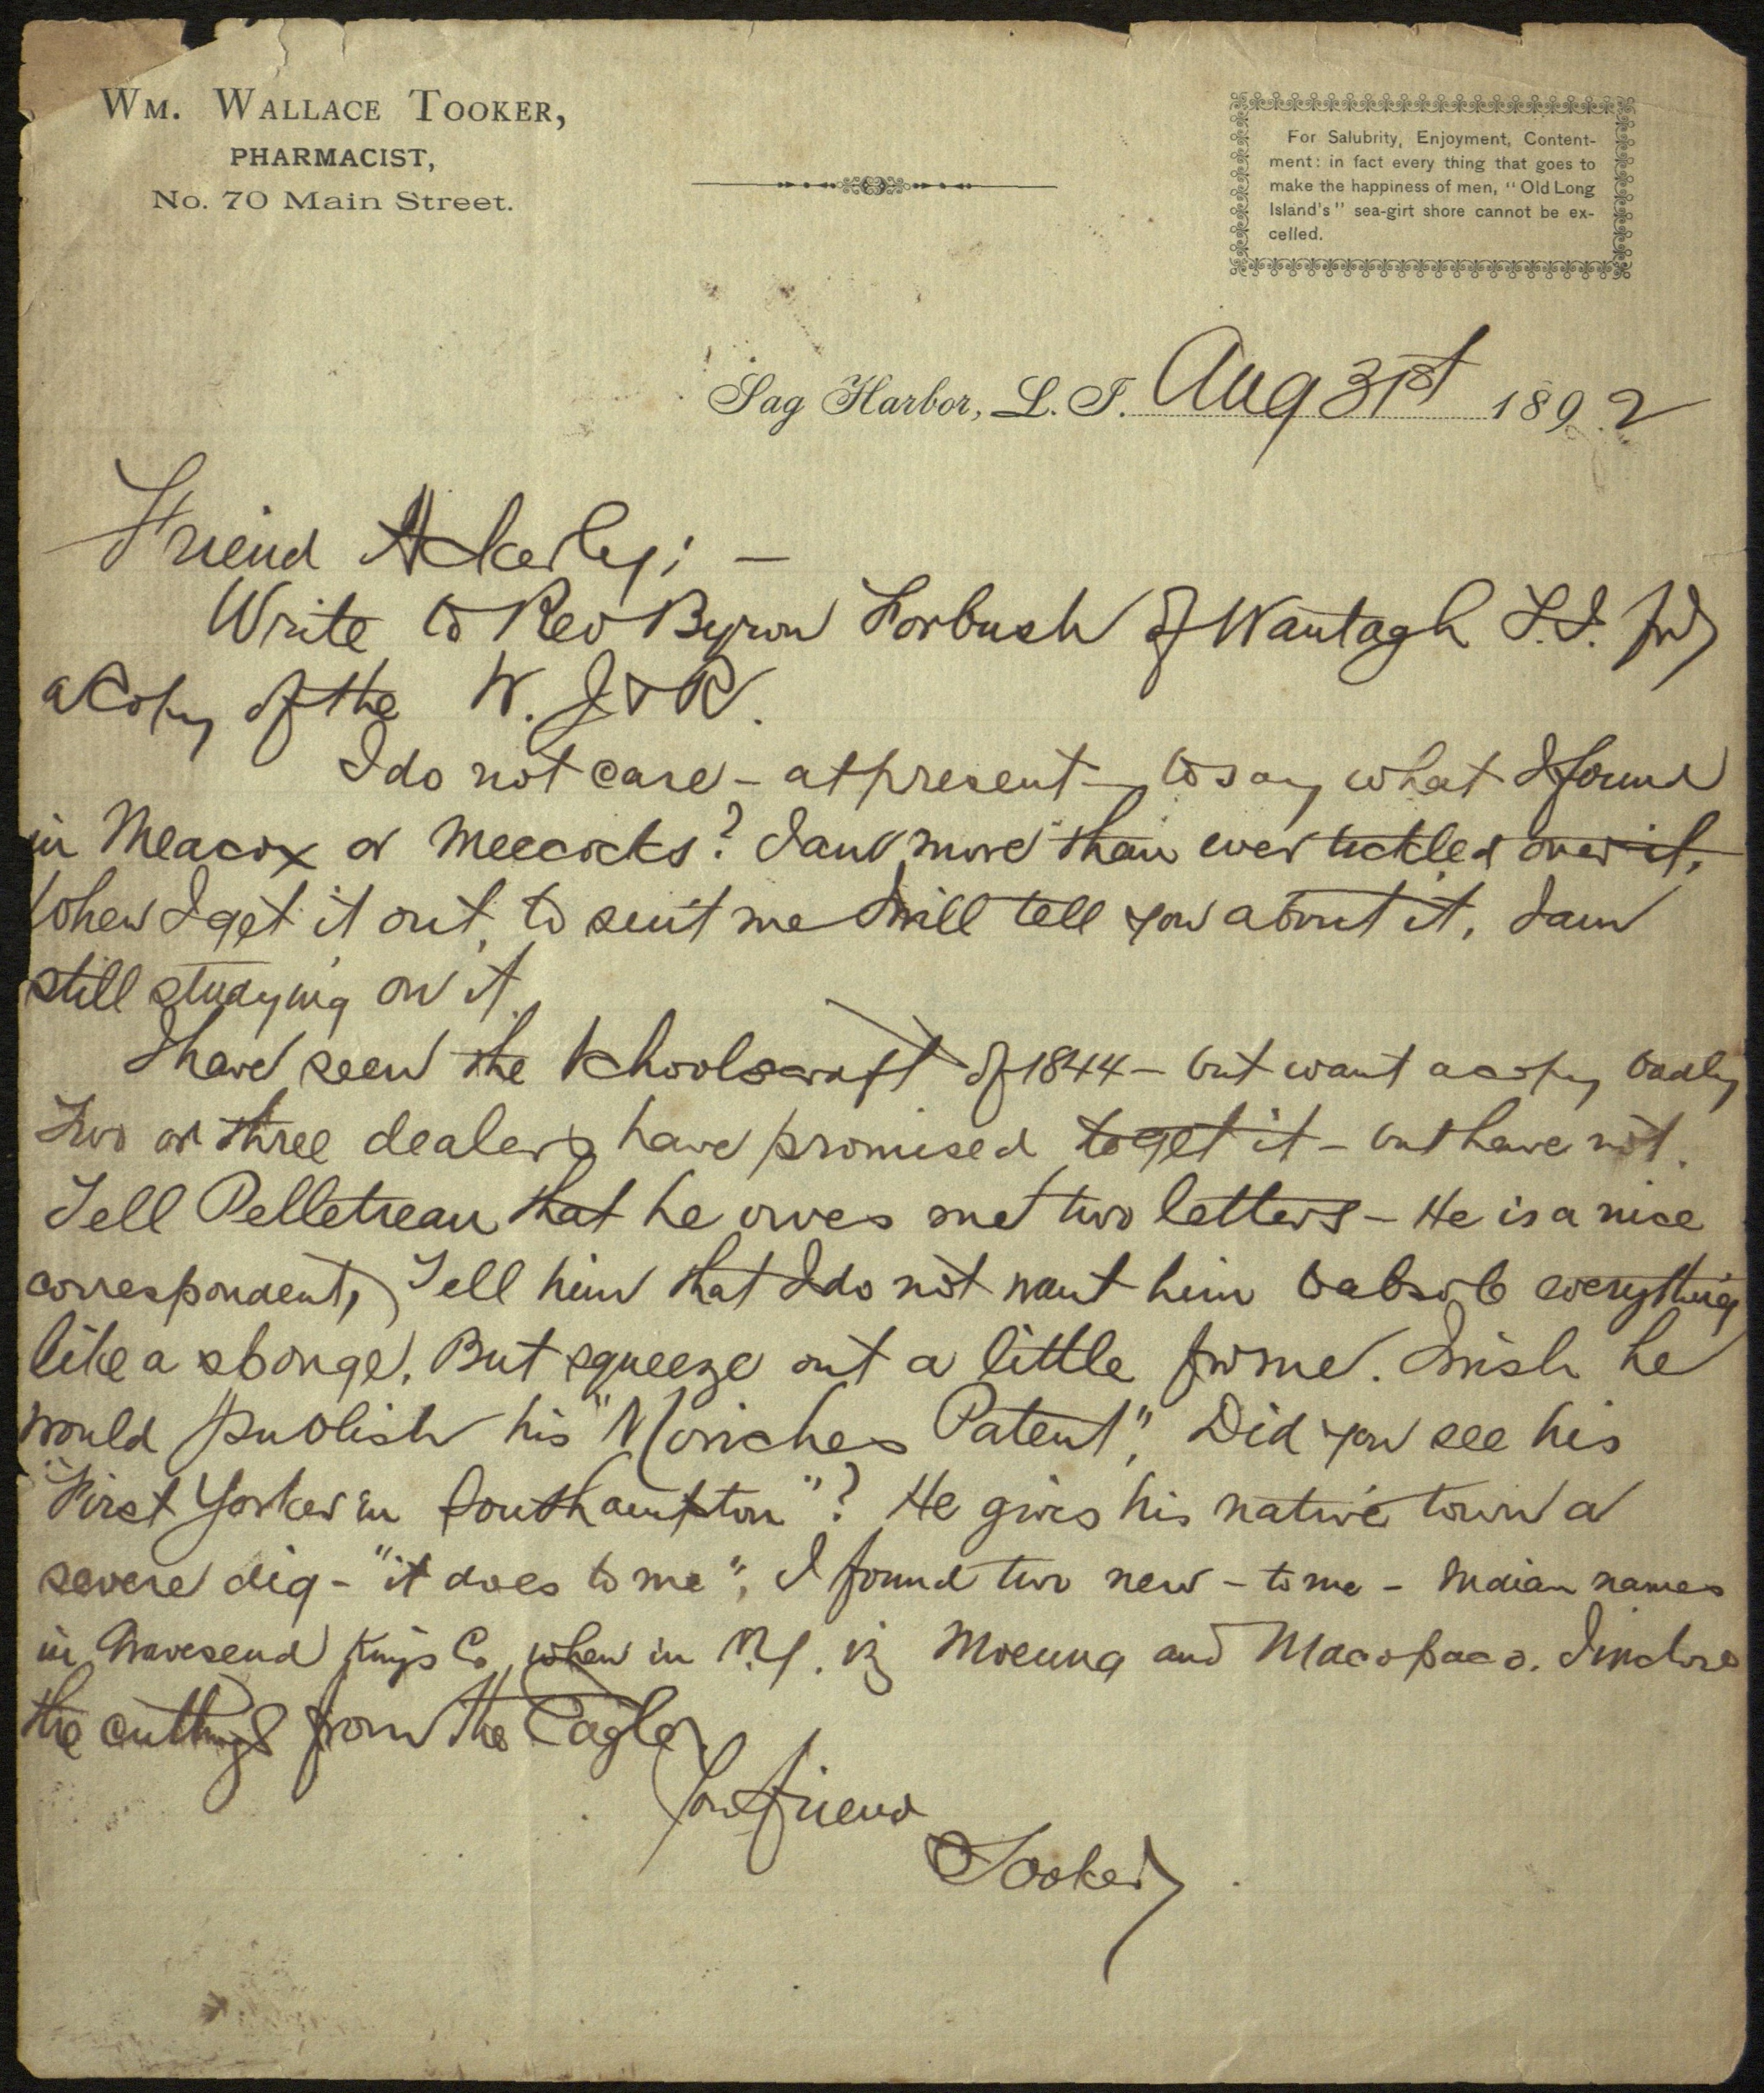 WM. WALLACE TOOKER,
PHARMACIST,
No. 70 Main Street.
For Salubrity, Enjoyment, Content-
ment: in fact every thing that goes to
make the happiness of men, "Old Long
Island's" sea-girt shore cannot be ex-
celled.
Sag Harbor, L. I. Aug 31st 1892
Friend Ackerly; —
Write to Rev Byron Forbush of Wantagh L.I. for
a Copy of the W. J & R.
I do not care - at present - to say what I found
in Meacox or Meecocks? I am more than ever tickled over it,
When I get it out, to suit me I will tell you about it, I am
still studying on it.
I have seen the Schoolcraft of 1844 - but want a copy badly
Two or three dealers have promised to get it - but have not.
Tell Pelletreau that he owes me two letters - He is a nice
correspondent, Tell him that I do not want him to absorb everything
like a sponge, But squeeze out a little for me. I wish he
would publish his "Moriches Patent", Did you see his
"First Yorker in Southampton"? He gives his native town a
severe dig - "it does to me", I found two new - to me - Indian names
in Gravesend Kings Co, when in N.Y. viz Moeung and Macopaco. I inclose
the cuttings from the Eagle.
Your friend
Tooker